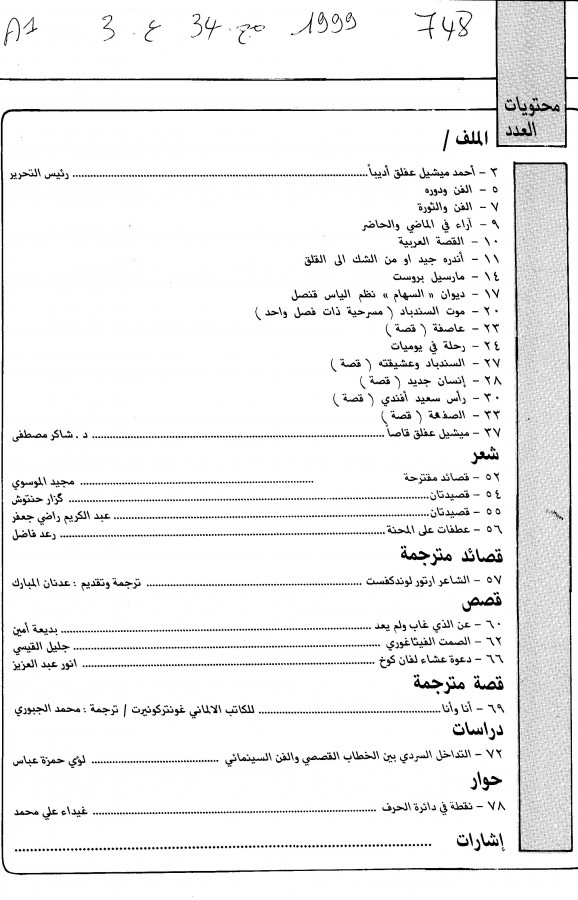 A1 3 . ع 34 مج. 1999 748
محتويات
العدد
الملف /
٣ - أحمد ميشيل عفلق أديباً ........ رئيس التحرير
٥ - الفن ودوره
٧ - الفن والثورة
٩ - آراء في الماضي والحاضر
١٠ - القصة العربية
١١ - أندره جيد او من الشك الى القلق
١٤ - مارسيل بروست
١٧ - ديوان « السهام » نظم الياس قنصل
٢٠ - موت السندباد ( مسرحية ذات فصل واحد )
٢٣ - عاصفة ( قصة )
٢٤ - رحلة في يوميات
٢٧ - السندباد وعشيقته ( قصة )
٢٨ - إنسان جديد ( قصة )
٣٠ - رأس سعيد أفندي ( قصة )
٣٣ - الصفعة ( قصة )
٣٧ - ميشيل عفلق قاصاً ........ د . شاكر مصطفى
شعر
٥٢ - قصائد مقترحة ........ مجيد الموسوي
٥٤ - قصيدتان ........ گزار حنتوش
٥٥ - قصيدتان ........ عبد الكريم راضي جعفر
٥٦ - عطفات على المحنة ........ رعد فاضل
قصائد مترجمة
٥٧ - الشاعر ارتور لوندكفست ........ ترجمة وتقديم : عدنان المبارك
قصص
٦٠ - عن الذي غاب ولم يعد ........ بديعة أمين
٦٢ - الصمت الفيثاغوري ........ جليل القيسي
٦٦ - دعوة عشاء لفان كوخ ........ انور عبد العزيز
قصة مترجمة
٦٩ - أنا وأنا ........ للكاتب الالماني غونتركونيرت / ترجمة : محمد الجبوري
دراسات
٧٢ - التداخل السردي بين الخطاب القصصي والفن السينمائي ........ لؤي حمزة عباس
حوار
٧٨ - نقطة في دائرة الحرف ........ غيداء علي محمد
إشارات ........